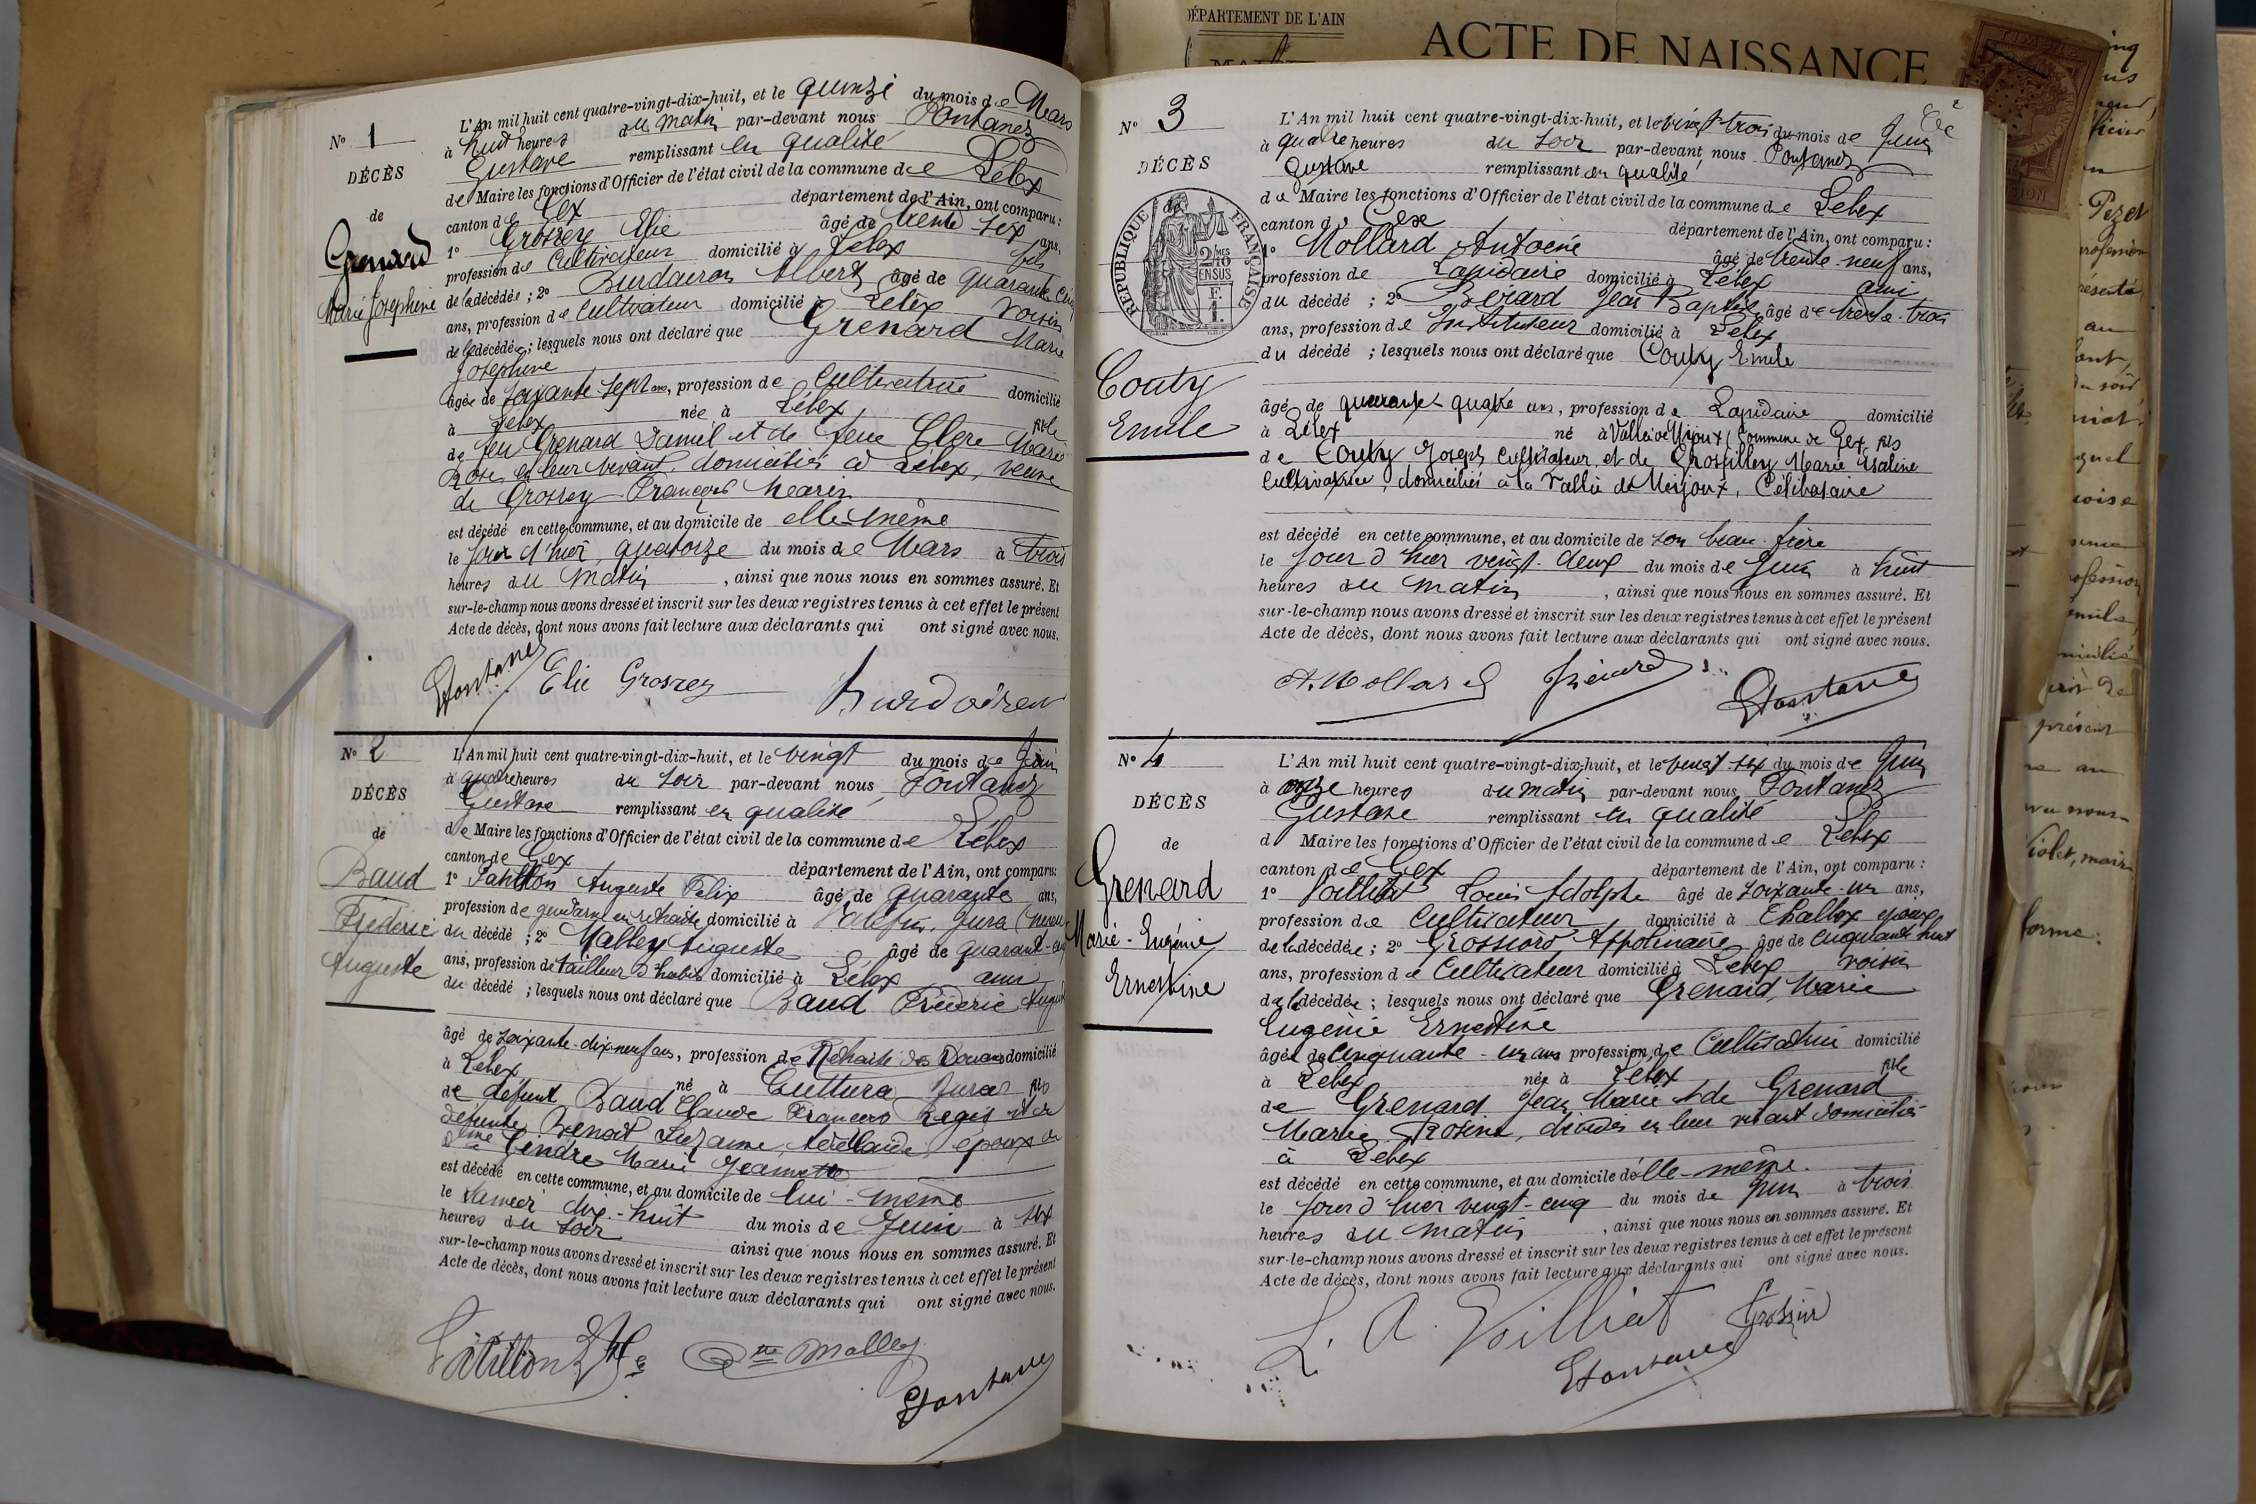 N° 1
DÉCÈS
de
Grenard
Marie Joséphine
L'An mil huit cent quatre-vingt-dix-huit, et le quinze du mois de Mars
à huit heures du matin par-devant nous Fontanez
Gustave remplissant en qualité
de Maire les fonctions d'Officier de l'état civil de la commune de Lélex
canton de Gex département de l'Ain, ont comparu :
1° Grosrey Elie âgé de trente six ans,
profession de Cultivateur domicilié à Lélex fils
de la décédée ; 2° Burdairon Albert âgé de quarante cinq
ans, profession de Cultivateur domicilié à Lélex voisin
de la décédée ; lesquels nous ont déclaré que Grenard Marie
Joséphine
âgée de soixante-sept ans, profession de Cultivatrice domicilié
à Lélex née à Lélex fille
de feu Grenard Daniel et de feue Marie
Rose en leur vivant domiciliés à Lélex, veuve
de Grosrey François Marin
est décédé en cette commune, et au domicile de elle-même
le jour d'hier, quatorze du mois de Mars à trois
heures du matin , ainsi que nous nous en sommes assuré. Et
sur-le-champ nous avons dressé et inscrit sur les deux registres tenus à cet effet le présent
Acte de décès, dont nous avons fait lecture aux déclarants qui ont signé avec nous.
Gfontanez Elie Grosrey Burdairon
N° 2
DÉCÈS
de
Baud
Fréderic
Auguste
L'An mil huit cent quatre-vingt-dix-huit, et le vingt du mois de Juin
à quatre heures du soir par-devant nous Fontanez
Gustave remplissant en qualité
de Maire les fonctions d'Officier de l'état civil de la commune de Lélex
canton de Gex département de l'Ain, ont comparu :
1° Auguste Félix âgé de quarante ans,
profession de gendarme en retraite domicilié à Jura (neveu
du décédé ; 2° Malley Auguste âgé de
ans, profession de tailleur d'habits domicilié à Lélex ami
du décédé ; lesquels nous ont déclaré que Baud Fréderic August
âgé de soixante-dix-neuf ans, profession de Retraité des Douanes domicilié
à Lélex né à Cuttura Jura fils
de défunt Baud Claude François Régis et de
défunte Benoit Suzanne, Adélaïde époux de
dme Gindre Marie Jeannette
est décédé en cette commune, et au domicile de lui-même
le samedi dix-huit du mois de Juin à six
heures du soir ainsi que nous nous en sommes assuré. Et
sur-le-champ nous avons dressé et inscrit sur les deux registres tenus à cet effet le présent
Acte de décès, dont nous avons fait lecture aux déclarants qui ont signé avec nous.
Malley
Gfontanez
DÉPARTEMENT DE L'AIN
ACTE DE NAISSANCE
N° 3
DÉCÈS
RÉPUBLIQUE FRANÇAISE
2/10 EN SUS
Couty
Emile
L'An mil huit cent quatre-vingt-dix-huit, et le vingt-trois du mois de Juin
à quatre heures du soir par-devant nous Fontanez
Gustave remplissant en qualité
de Maire les fonctions d'Officier de l'état civil de la commune de Lélex
canton de Gex département de l'Ain, ont comparu :
1° Mollard Antoine âgé de trente-neuf ans,
profession de Lapidaire domicilié à Lélex ami
du décédé ; 2° Jean Baptiste âgé de trente-trois
ans, profession de Instituteur domicilié à Lélex
du décédé ; lesquels nous ont déclaré que Couty Emile
âgé de quarante quatre ans, profession de Lapidaire domicilié
à Lélex né à Vallée de Mijoux, Commune de Gex fils
de Couty Joseph Cultivateur et de Grossillex Marie
Cultivatrice, domiciliés à la Vallée de Mijoux, Célibataire
est décédé en cette commune, et au domicile de son beau-frère
le jour d'hier vingt-deux du mois de Juin à huit
heures du matin , ainsi que nous nous en sommes assuré. Et
sur-le-champ nous avons dressé et inscrit sur les deux registres tenus à cet effet le présent
Acte de décès, dont nous avons fait lecture aux déclarants qui ont signé avec nous.
A. Mollard Gfontanez
N° 4
DÉCÈS
de
Grenard
Marie-Eugénie
Ernestine
L'An mil huit cent quatre-vingt-dix-huit, et le vingt six du mois de Juin
à onze heures du matin par-devant nous Fontanez
Gustave remplissant en qualité
d Maire les fonctions d'Officier de l'état civil de la commune de Lélex
canton de Gex département de l'Ain, ont comparu :
1° Voilliat Louis Adolphe âgé de soixante-un ans,
profession de Cultivateur domicilié à époux
de la décédée ; 2° Grossiord Appolinaire âgé de cinquante huit
ans, profession de Cultivateur domicilié à Lélex voisin
de la décédée ; lesquels nous ont déclaré que Grenard, Marie
Eugénie Ernestine
âgée de cinquante-un ans profession de Cultivatrice domicilié
à Lélex née à Lélex fille
de Grenard Jean Marie et de Grenard
Marie Rosine, décédés en leur vivant domiciliés
à Lélex
est décédé en cette commune, et au domicile d'elle-même.
le jour d'hier vingt-cinq du mois de Juin à trois
heures du matin , ainsi que nous nous en sommes assuré. Et
sur-le-champ nous avons dressé et inscrit sur les deux registres tenus à cet effet le présent
Acte de décès, dont nous avons fait lecture aux déclarants qui ont signé avec nous.
L. A. Voilliat
Gfontanez